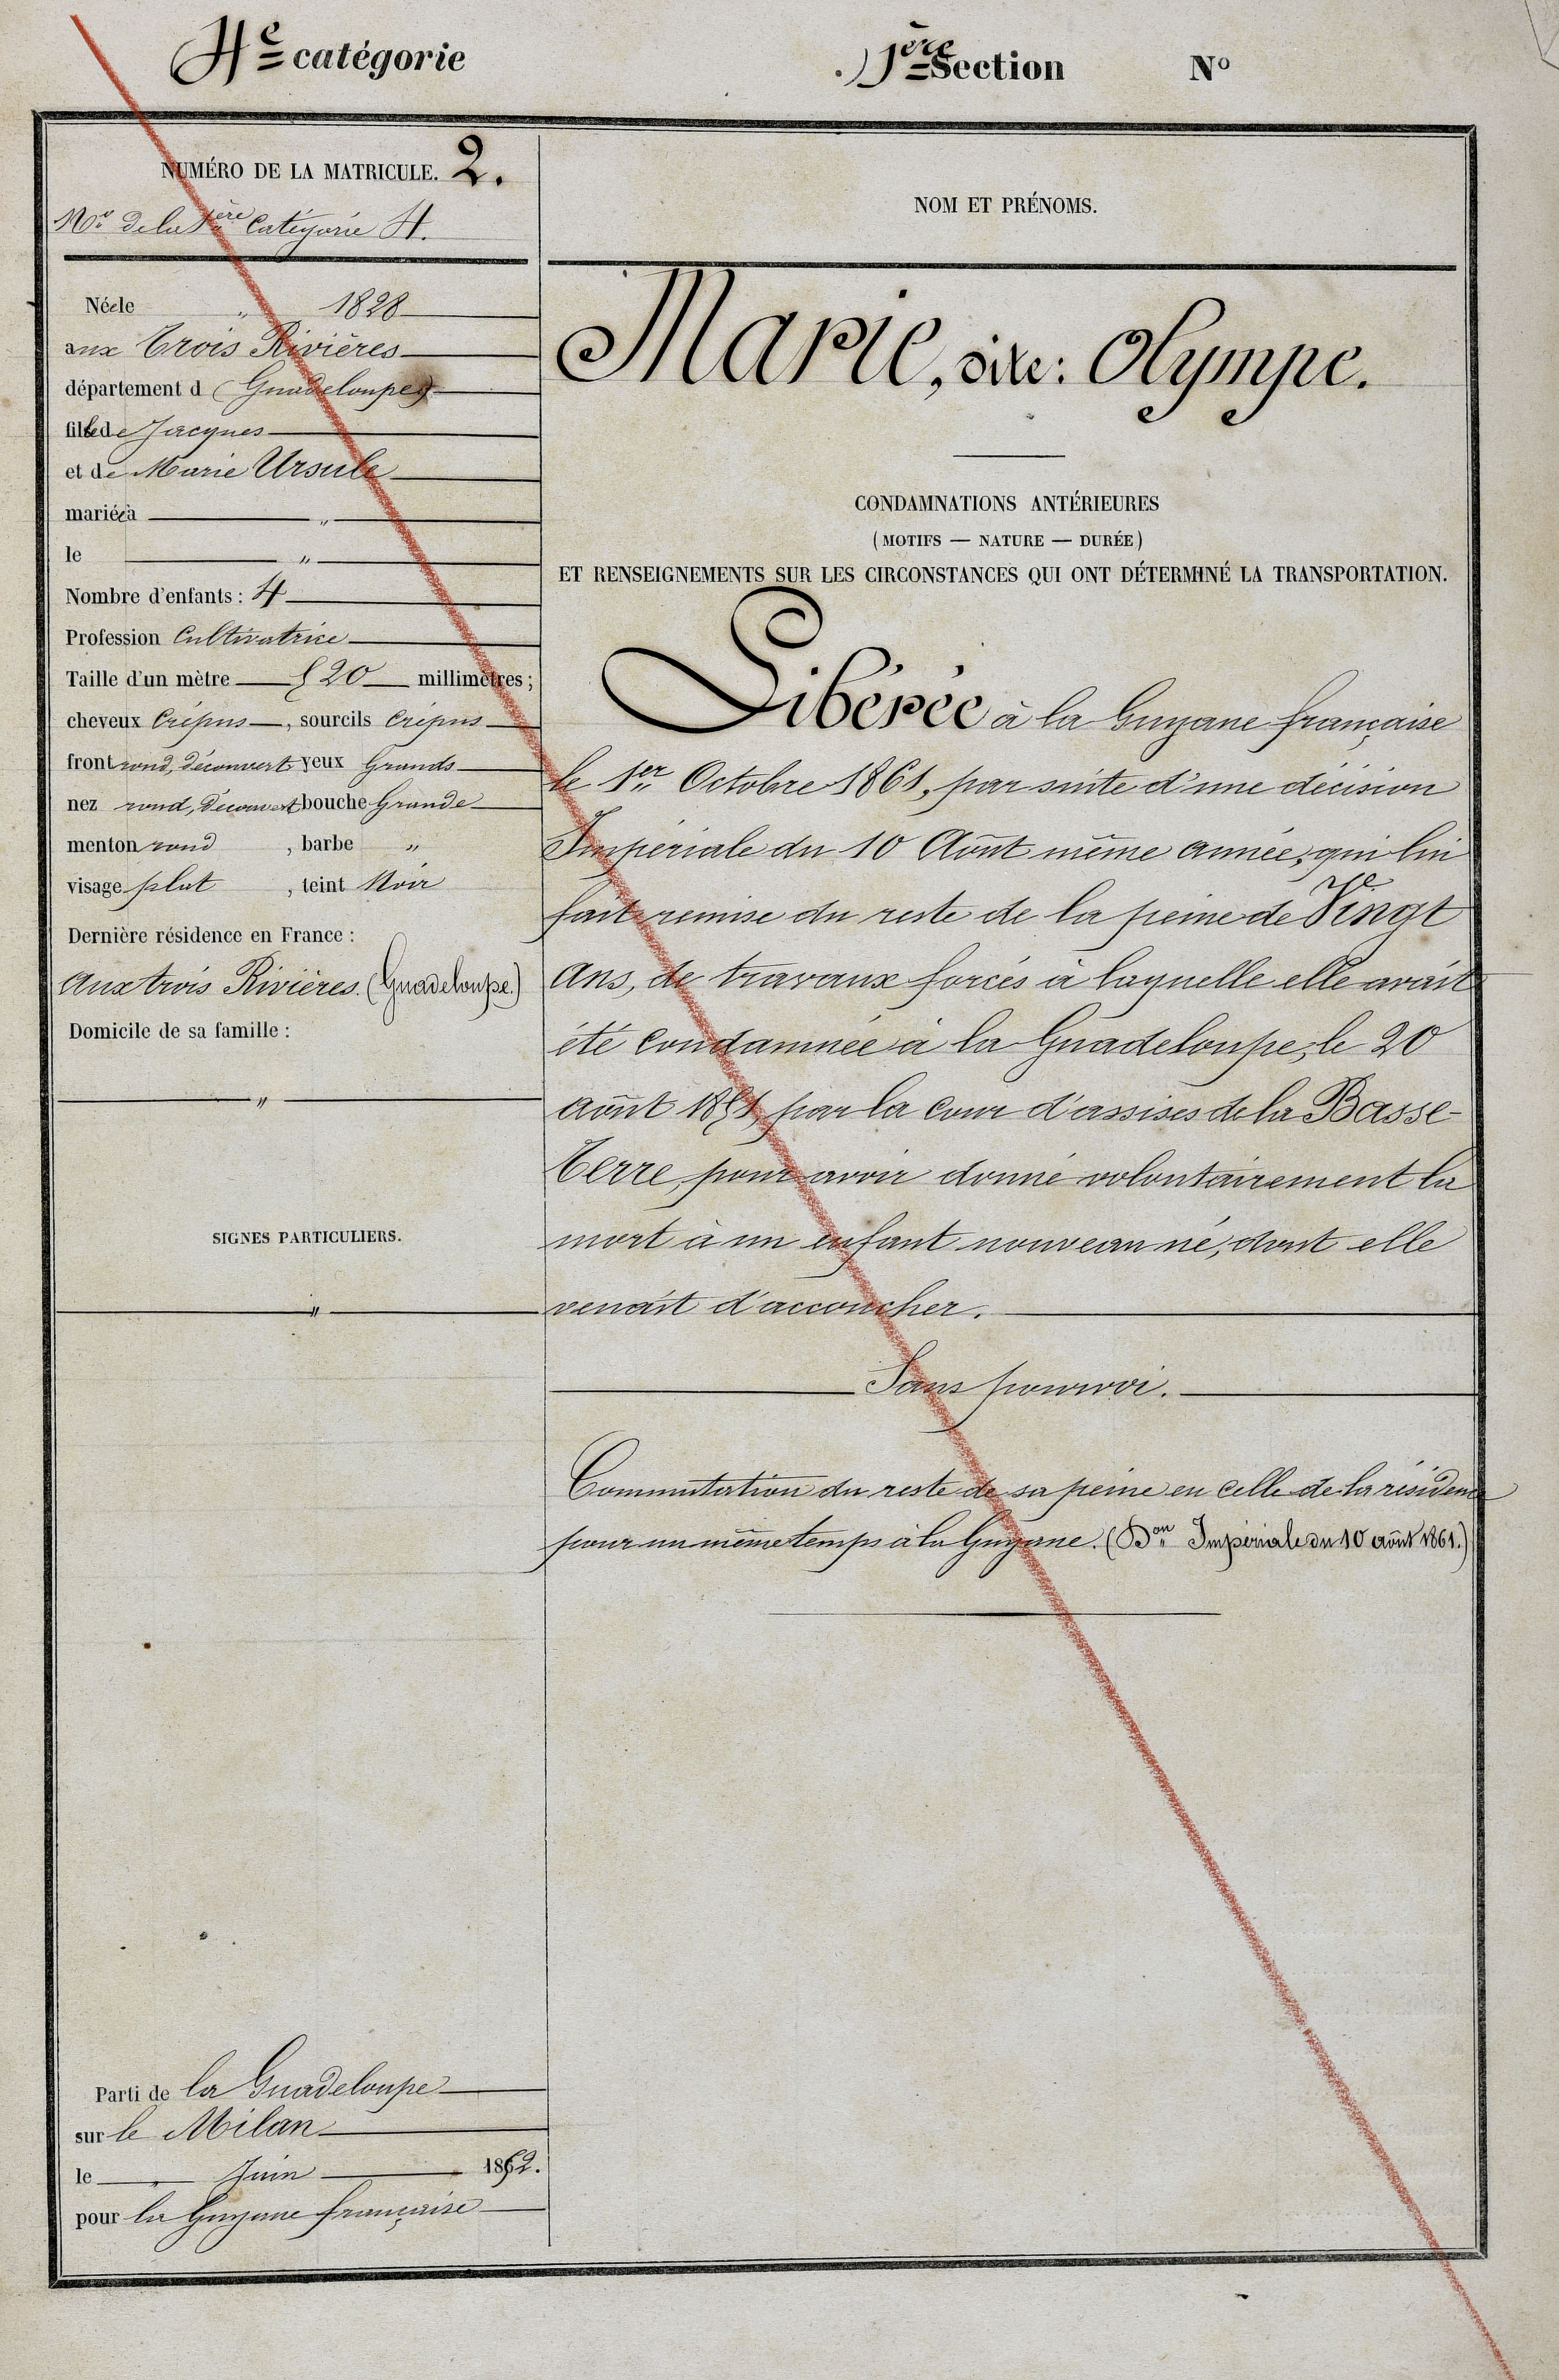 4e catégorie
1ère Section
No
NUMÉRO DE LA MATRICULE. 2.
No de la 1ère Catégorie 4.
Née le " 1828
aux Trois Rivières
département d (Guadeloupe)
fille de Jacques
et de Marie Ursule
mariée à "
le "
Nombre d'enfants : 4
Profession Cultivatrice
Taille d'un mètre 520 millimètres ;
cheveux Crépus, sourcils Crépus
front rond, découvert yeux Grands
nez rond, découvert bouche Grande
menton rond, barbe "
visage plat, teint Noir
Dernière résidence en France :
Aux trois Rivières. (Guadeloupe.)
Domicile de sa famille :
"
SIGNES PARTICULIERS.
"
Parti de la Guadeloupe
sur le Milan
le " Juin 1852.
pour la Guyane française
NOM ET PRÉNOMS.
Marie, dite : Olympe.
CONDAMNATIONS ANTÉRIEURES
(MOTIFS — NATURE — DURÉE)
ET RENSEIGNEMENTS SUR LES CIRCONSTANCES QUI ONT DÉTERMINÉ LA TRANSPORTATION.
Libérée à la Guyane française
le 1er Octobre 1861, par suite d'une décision
Impériale du 10 Août même année, qui lui
fait remise du reste de la peine de Vingt
Ans, de travaux forcés à laquelle elle avait
été Condamnée à la Guadeloupe, le 20
août 1851, par la Cour d'assises de la Basse-
Terre, pour avoir donné volontairement la
mort à un enfant nouveau né, dont elle
venait d'accoucher.
Sans pourvoi.
Commutation du reste de sa peine en celle de la résidence
pour un même temps à la Guyane. (Don Impériale du 10 août 1861.)